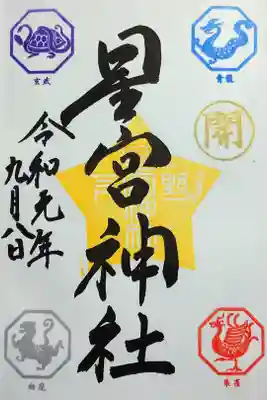 玄武
青龍
開
星宮神社
令和元年
九月八日
朱雀